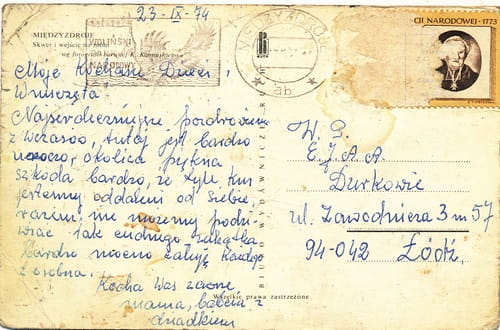 23-IX-74
MIĘDZYZDROJE
Skwer i wejście na molo
wg fotografii barwnej K.
WOLIŃSKI
NARODOWY
MIĘDZYZDROJE
ab
CJI NARODOWEJ · 1773
Moje Kochane Dzieci,
Wnuczęta!
Najserdeczniejsze pozdrowienia
z wczasów, tutaj jest bardzo
uroczo, okolica piękna
szkoda bardzo, że tyle km
jesteśmy oddaleni od siebie
razem nie możemy podzi
wiać tak cudnego zakątka
Bardzo mocno całuję każdego
z osobna.
Kocha Was zawsze
mama, babcia z
dziadkiem
BIURO WYDAWNICZE RUCH
W. P.
E.J.A.A.
Durkowie
ul. Zawodnicza 3 m 57
94-042 Łódź
Wszelkie prawa zastrzeżone